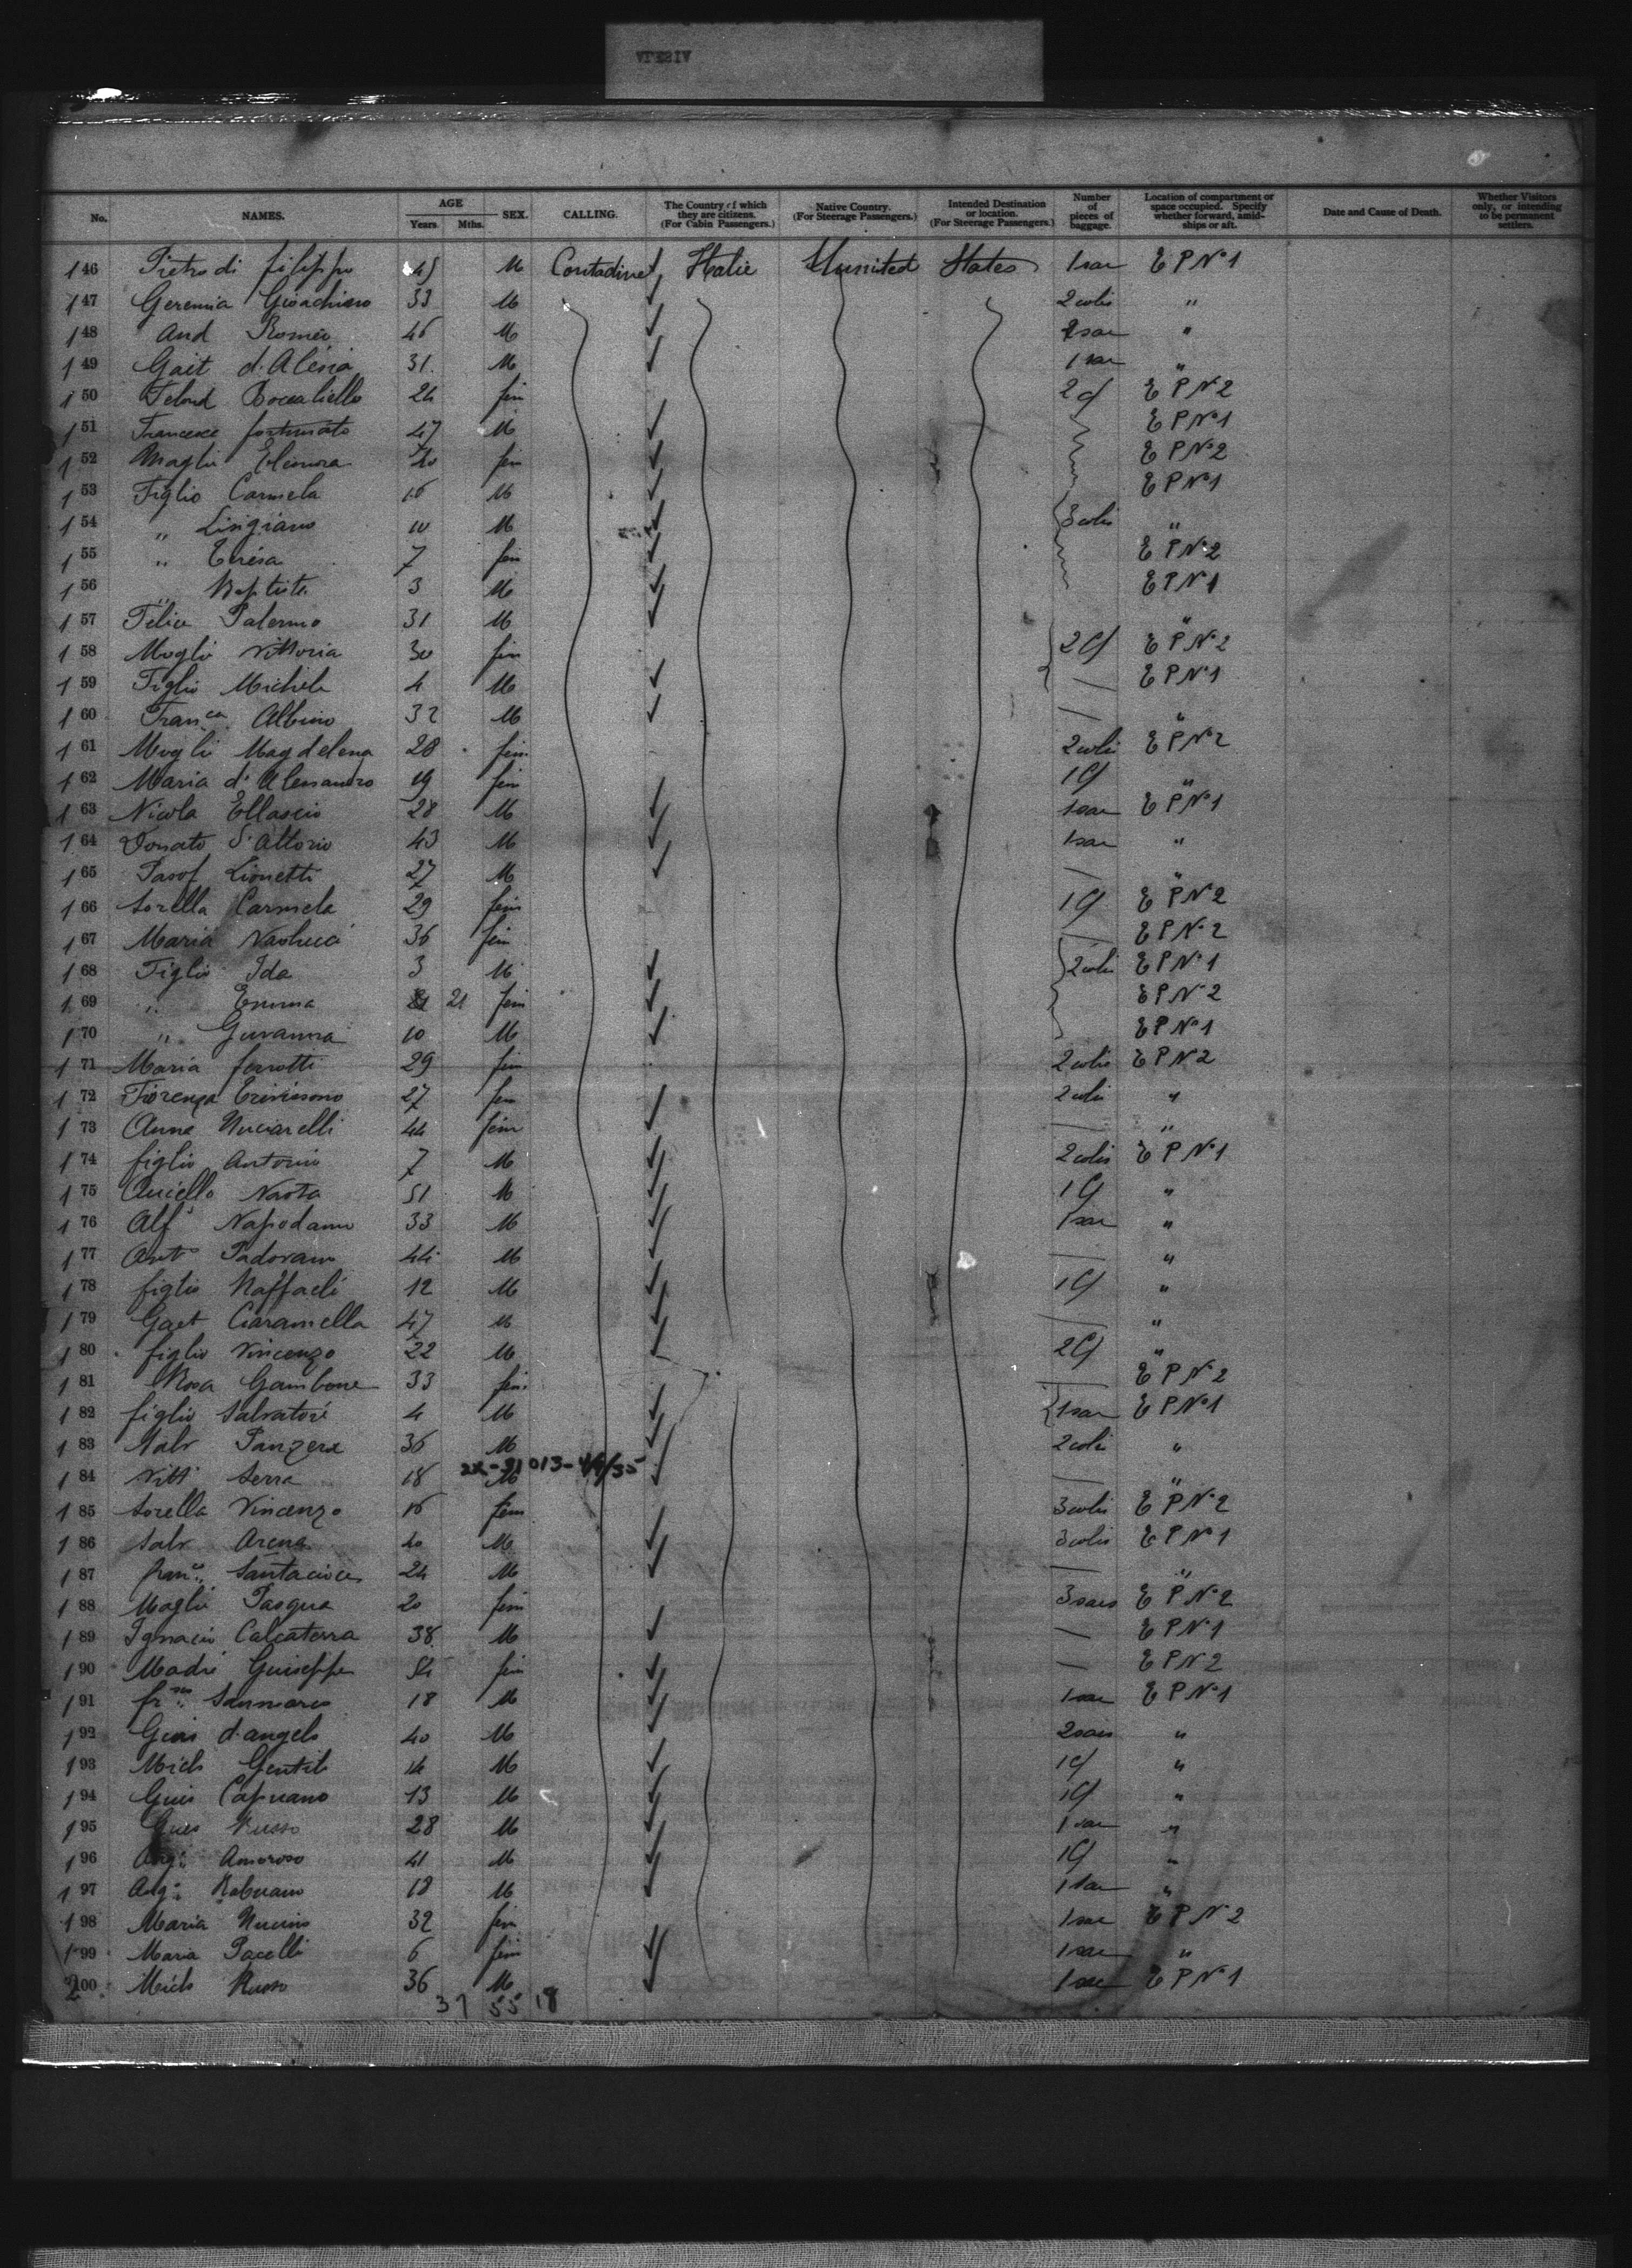 No. NAMES. AGE Years Mths. SEX. CALLING. The Country of which they are citizens. (For Cabin Passengers.) Native Country. (For Steerage Passengers.) Intended Destination or location. (For Steerage Passengers.) Number of pieces of baggage. Location of compartment or space occupied. Specify whether forward, amidships or aft. Date and Cause of Death. Whether Visitors only, or intending to be permanent settlers.
146 Pietro di filippo 45 M Contadine Italie Uunited States 1 sac E P No 1
147 Geremia Gioachino 33 M 2 colis "
148 And Romeo 46 M 2 sac "
149 Gait d'Alesia 31 M 1 sac "
150 Boccaliello 24 fem 2 c/ E P No 2
151 Francesco fortunato 47 M E P No 1
152 Moglie Eleonora 40 fem E P No 2
153 Figlio Carmela 16 M E P No 1
154 " 10 M 3 colis "
155 " Teresa 7 fem E P No 2
156 " Baptiste 3 M E P No 1
157 Felice Palermo 31 M "
158 Moglie Vittoria 30 fem 2 C/ E P No 2
159 Figlio Michele 4 M — E P No 1
160 Franca Albino 32 M — "
161 Moglie Magdelena 28 fem 2 colis E P No 2
162 Maria d'Alessandro 19 fem 1 C/ "
163 Nicola Ellascio 28 M 1 sac E P No 1
164 Donato D'Attorio 43 M 1 sac "
165 Lionetti 27 M — "
166 Sorella Carmela 29 fem 1 C/ E P No 2
167 Maria 36 fem — E P No 2
168 Figlio Ida 3 M 2 colis E P No 1
169 " Emma 21 fem E P No 2
170 " Giovanna 10 M E P No 1
171 Maria ferrotti 29 fem 2 colis E P No 2
172 Fiorenza Trivisono 27 fem 2 colis "
173 Anna Nuciarelli 44 fem — "
174 figlio Antonio 7 M 2 colis E P No 1
175 Aniello Nasta 51 M 1 C/ "
176 Alfo Napodano 33 M 1 sac "
177 Anto Padovano 44 M — "
178 figlio Raffaeli 12 M 1 C/ "
179 Gaet Ciaramella 47 M — "
180 figlio Vincenzo 22 M 2 C/ "
181 Rosa Gambone 33 fem — E P No 2
182 figlio Salvatore 4 M 1 sac E P No 1
183 Salv Panzera 36 M 2 colis "
184 Vitt Serra 18 M — "
185 Sorella Vincenzo 16 fem 3 colis E P No 2
186 Salv Arena 40 M 3 colis E P No 1
187 franco 24 M — "
188 Moglie Pasqua 20 fem 3 sacs E P No 2
189 Ignacio Calcaterra 38 M — E P No 1
190 Madre Guiseppe 54 fem — E P No 2
191 Sanmarco 18 M 1 sac E P No 1
192 d'angelo 40 M 2 sacs "
193 Mich Gentile 14 M 1 C/ "
194 Guis Capuano 13 M 1 C/ "
195 Guis Russo 28 M 1 sac "
196 Ango Amoroso 41 M 1 C/ "
197 Ango 18 M 1 sac "
198 Maria 32 fem 1 sac E P No 2
199 Maria Pacelli 6 fem 1 sac "
200 Mich Russo 36 M 1 sac E P No 1
37 55 18